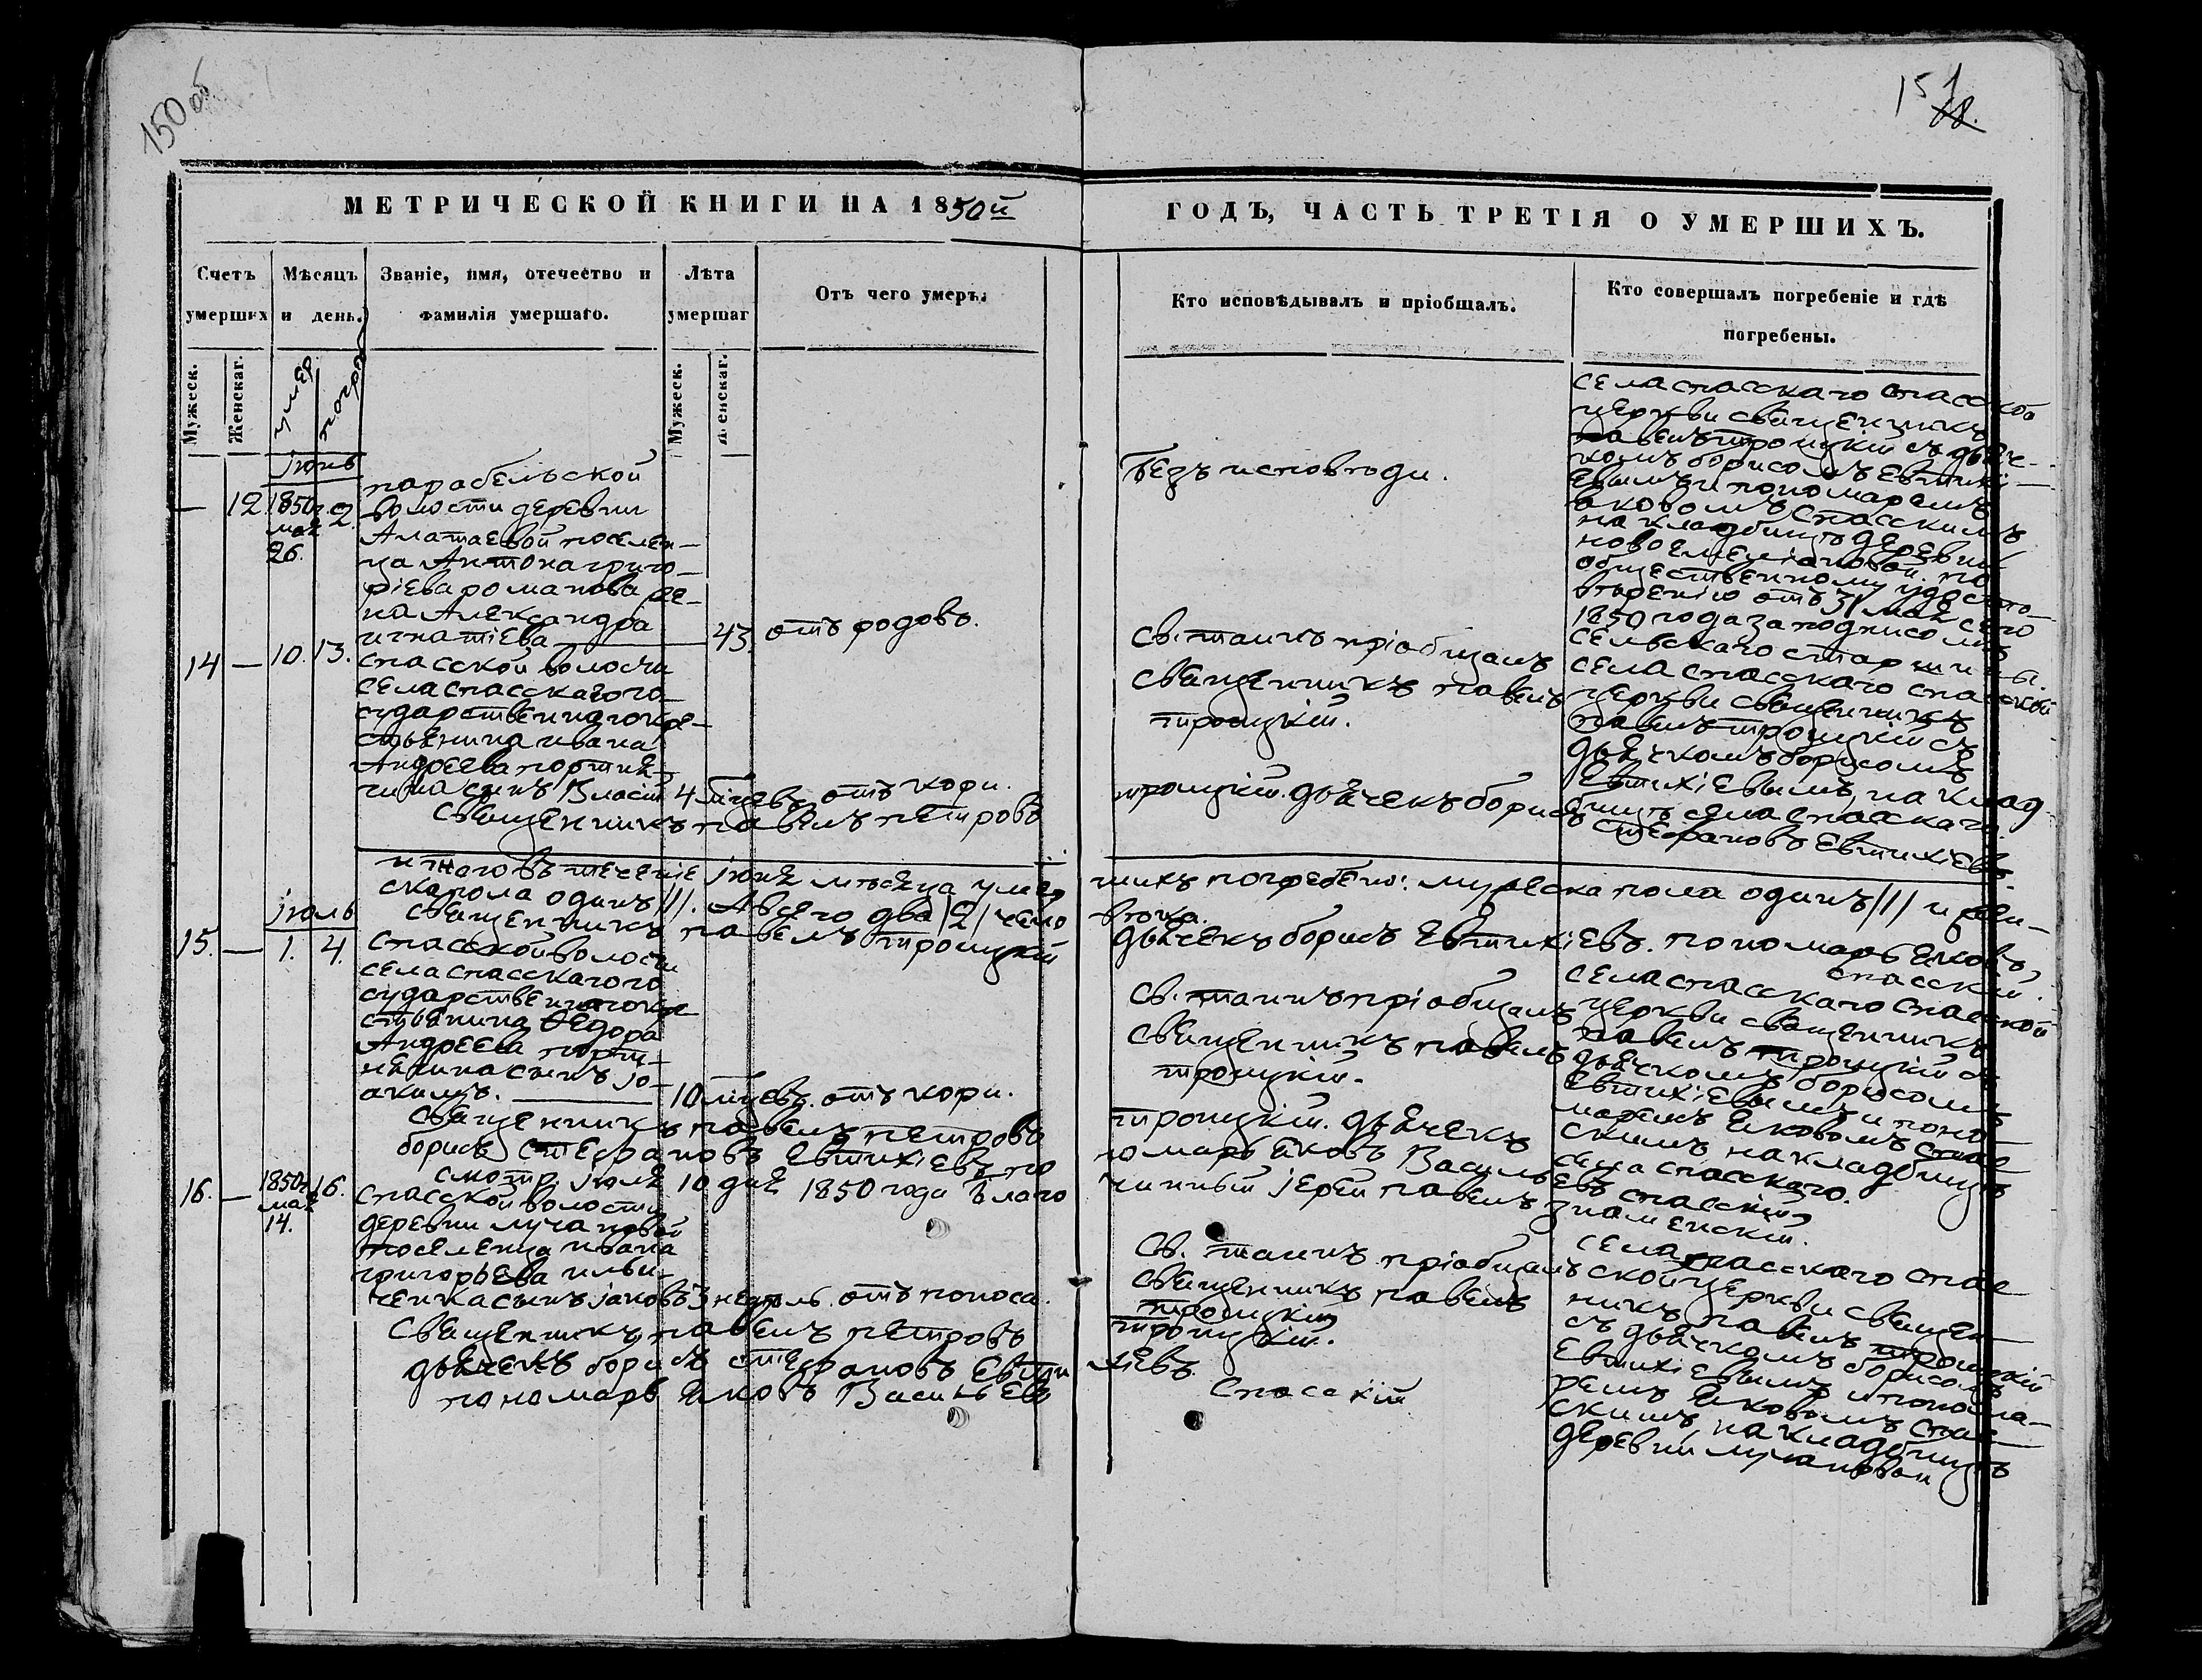 150 об
151
18.
МЕТРИЧЕСКОЙ КНИГИ НА 1850й
ГОДЪ, ЧАСТЬ ТРЕТІЯ О УМЕРШИХЪ.
Счетъ умерших
Мѣсяцъ и день.
Званіе, имя, отечество и фамилія умершаго.
Лѣта умершаг
Отъ чего умеръ.
Кто исповѣдывалъ и пріобщалъ.
Кто совершалъ погребеніе и гдѣ погребены.
Мужеск.
Женскаг.
умер
погре
Мужеск.
Женскаг.
іюнь
— 12 1850г. мая 26. 2.
парабельской
волости деревни
Алатаевой поселен-
ца Антона григо-
ріева романова же-
на Александра
игнатіева
43 отъ родовъ.
Безъ исповѣди.
села спасскаго спасской
церкви священникъ
павелъ троицкій съ дьяч-
комъ борисомъ Евтихі-
евымъ и пономаремъ
яковомъ спасскимъ
на кладбищѣ деревни
новоемеліановой. по
общественному удосто-
веренію отъ 31 мая сего
1850 года за подписомъ
сельскаго старшины.
14 — 10. 13.
спасской волости
села спасскаго го-
сударственнаго кре-
стьянина ивана
Андреева портня-
гина сынъ Власій 4 мцевъ отъ кори.
св. таинъ пріобщалъ
священникъ павелъ
троицкій.
села спасскаго спасской
церкви священникъ
павелъ троицкій съ
дьячкомъ борисомъ
Евтихіевымъ, на клад-
бищѣ села спасскаго.
священникъ павелъ петровъ
троицкій. дьячекъ борисъ стефановъ Евтихіевъ.
итого въ теченіе іюня мѣсяца умер
шихъ погребено: мужеска пола одинъ /1/ и жен-
ска пола одинъ /1/. А всего два /2/ чело
вѣка.
священникъ павелъ троицкій
дьячекъ борисъ Евтихіевъ. пономарь яковъ
спасскій.
іюль
15. — 1. 4.
спасской волости
села спасскаго го
сударственнаго кре
стьянина Ѳедора
Андреева порт-
нягина сынъ іо-
акимъ. 10 мцевъ. отъ кори.
св. таинъ пріобщалъ
священникъ павелъ
троицкій.
села спасскаго спасской
церкви священникъ
павелъ троицкій съ
дьячкомъ борисомъ
Евтихіевымъ и поно-
маремъ яковомъ спас
скимъ на кладбищѣ
села спасскаго.
священникъ павелъ петровъ
троицкій. дьячекъ
борисъ стефановъ Евтихіевъ по
номарь яковъ Васильевъ спасскій.
смотр. іюля 10 дня 1850 года благо
чинный іерей павелъ знаменскій.
16. — 1850г. мая 14. 16.
спасской волости
деревни лучановой
поселенца ивана
григорьева ильи-
ченка сынъ іаковъ 3 недѣль. отъ поноса.
св. таинъ пріобщалъ
священникъ павелъ
троицкій
села спасскаго спас
ской церкви священ-
никъ павелъ троицкій
съ дьячкомъ борисомъ
Евтихіевымъ и понома-
ремъ яковомъ спас-
скимъ, на кладбищѣ
деревни лучановой
священникъ павелъ петровъ
троицкій.
дьячекъ борисъ стефановъ Евти
хіевъ.
пономарь яковъ Васильевъ
спасскій